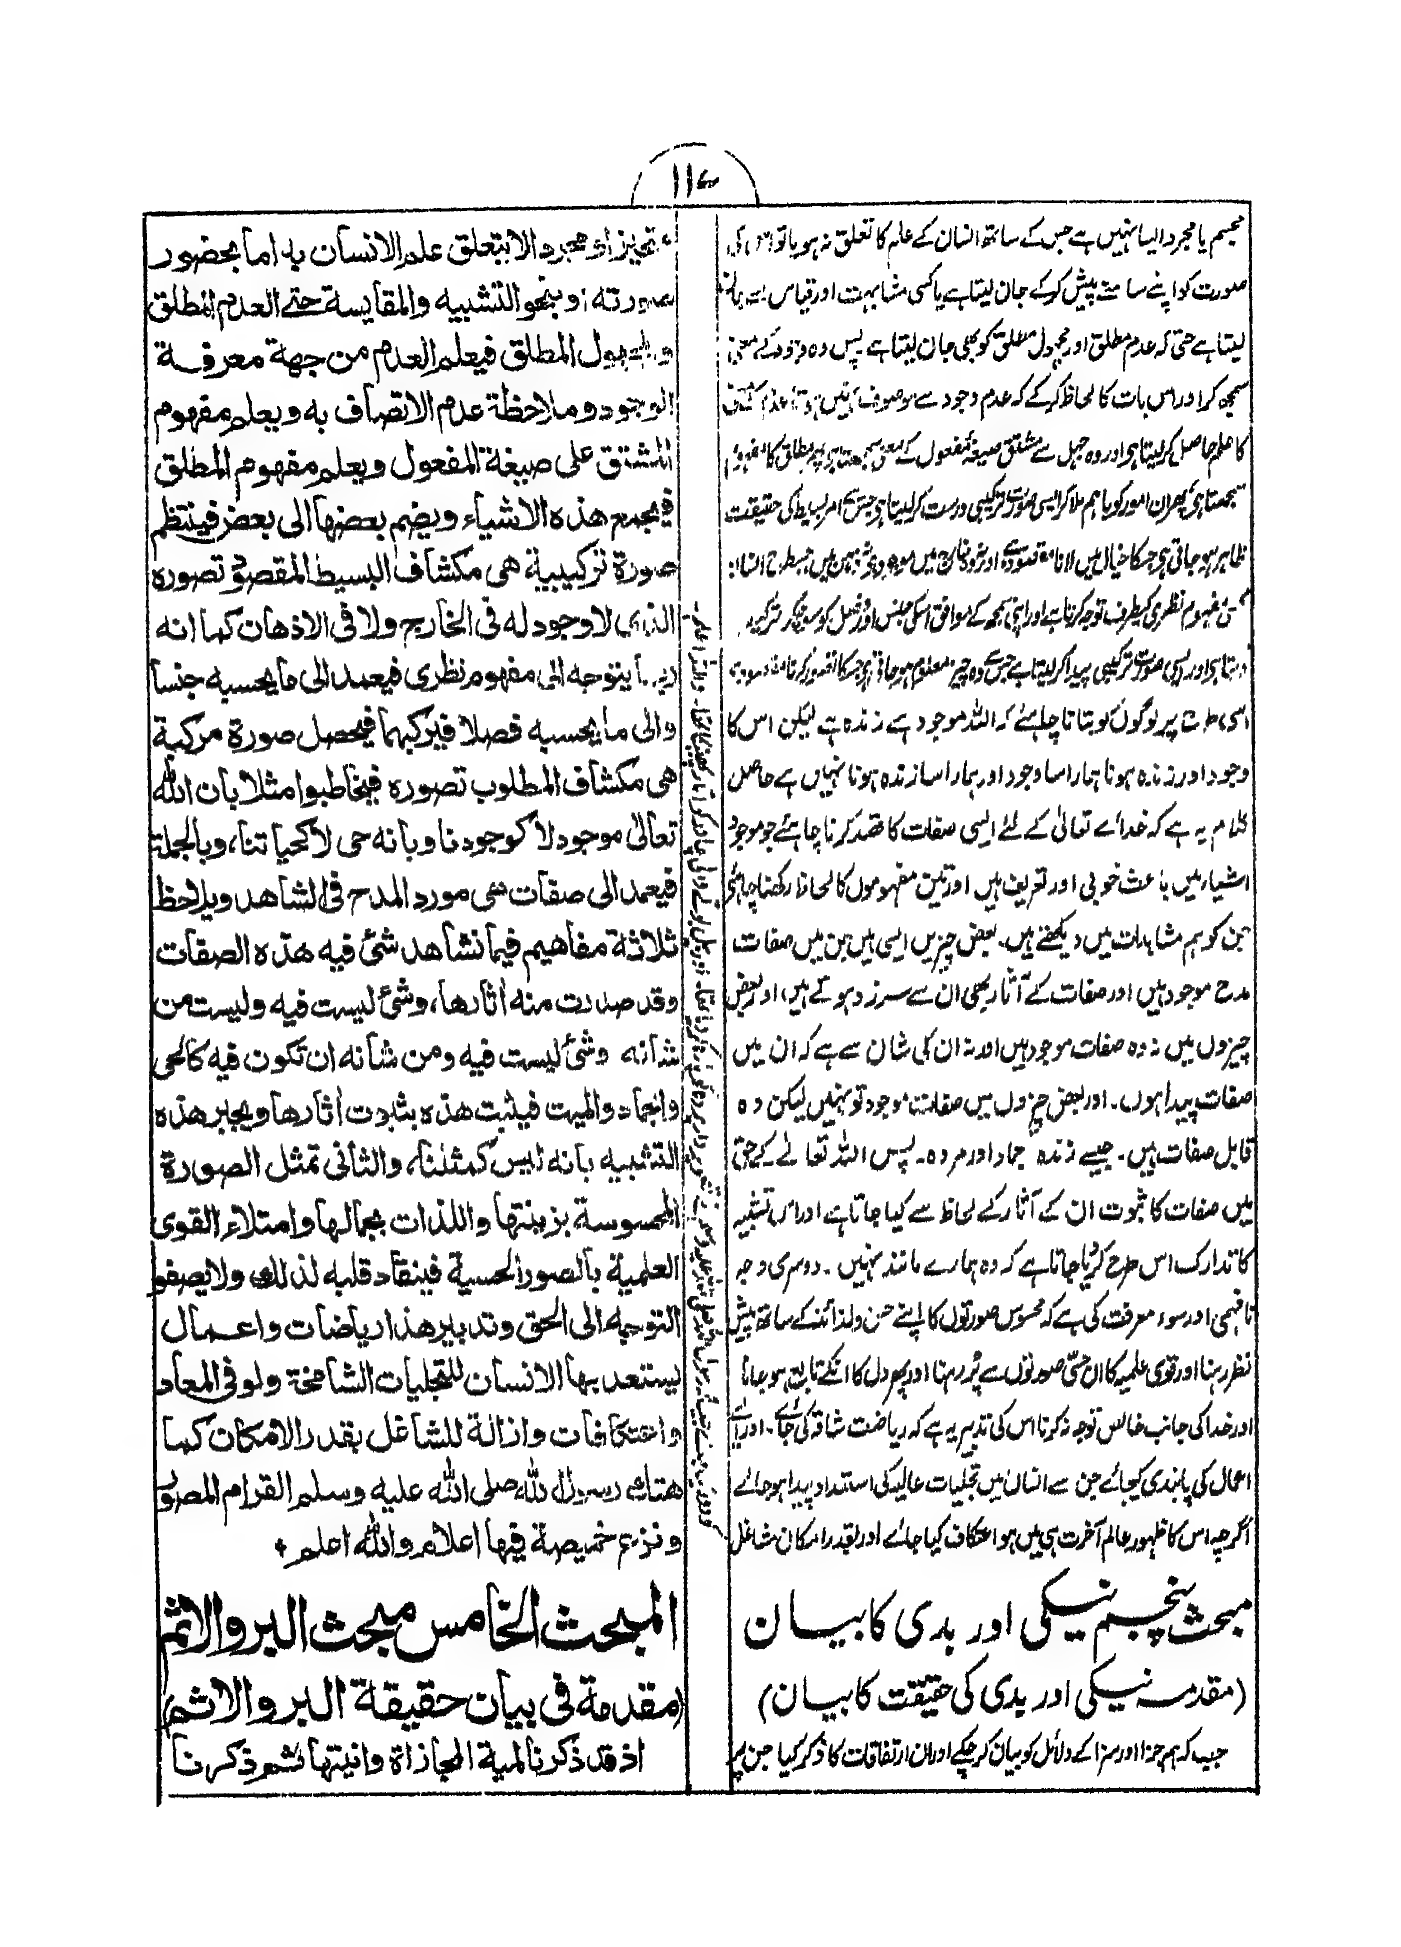 ۱۱۷
مجسم یا مجرد ایسا نہیں ہے جس کے ساتھ انسان کے علم کا تعلق نہ ہو یا تو ان کی
صورت کو اپنے سامنے پیش کر کے جان لیتا ہے یا کسی مشابہت اور قیاس سے جان
لیتا ہے حتی کہ عدم مطلق اور مجہول مطلق کو بھی جان لیتا ہے پس وہ وجود کے معنی
سمجھ کر اور اس بات کا لحاظ کر کے کہ عدم وجود سے موصوف نہیں ہوتا عدم مطلق
کا علم حاصل کر لیتا ہی اور وہ جہل سے مشتق صیغہ مفعول کے معنی سمجھتا ہی پھر مطلق کا مفہوم
سمجھتا ہی پھر ان امور کو باہم ملا کر ایسی صورت ترکیبی درست کر لیتا ہی جس سے امر بسیط کی حقیقت
ظاہر ہو جاتی ہی جسکا خیال میں لانا مقصود ہے اور نہ وہ خارج میں موجود ہی نہ ذہن میں جسطرح انسان
کسی مفہوم نظری کیطرف توجہ کرتا ہے اور اپنی سمجھ کے موافق اسکی جنس اور فصل کو سوچکر ترکیب
دیتا ہی اور ایسی صورت ترکیبی پیدا کر لیتا ہے جس سے وہ چیز معلوم ہو جاتی ہی جسکا تصور کرنا مقصود ہے
اسی طرح پر لوگوں کو بتانا چاہئے کہ اللہ موجود ہے زندہ ہے لیکن اس کا
وجود اور زندہ ہونا ہمارا سا وجود اور ہمارا سا زندہ ہونا نہیں ہے حاصل
کلام یہ ہے کہ خدائے تعالیٰ کے لئے ایسی صفات کا قصد کرنا چاہئے جو موجود
اشیاء میں باعث خوبی اور تعریف ہیں اور تین مفہوموں کا لحاظ رکھنا چاہئے
جن کو ہم مشاہدات میں دیکھتے ہیں۔ بعض چیزیں ایسی ہیں جن میں صفات
مدح موجود ہیں اور صفات کے آثار بھی ان سے سرزد ہوتے ہیں، اور بعض
چیزوں میں نہ وہ صفات موجود ہیں اور نہ ان کی شان سے ہے کہ ان میں
صفات پیدا ہوں۔ اور بعض چیزوں میں صفات موجود تو نہیں لیکن وہ
قابل صفات ہیں۔ جیسے زندہ جماد اور مردہ۔ پس اللہ تعالےٰ کے حق
میں صفات کا ثبوت ان کے آثار کے لحاظ سے کیا جاتا ہے اور اس تشبیہ
کا تدارک اس طرح کر دیا جاتا ہے کہ وہ ہمارے مانند نہیں۔ دوسری وجہ
نافہمی اور سوء معرفت کی ہے کہ محسوس صورتوں کا اپنے حسن و لذائذ کے ساتھ پیش
نظر رہنا اور قوی علمیہ کا ان حسی صورتوں سے پُر رہنا اور پھر دل کا انکے تابع ہو جانا
اور خدا کی جانب خالص توجہ نہ کرنا اس کی تدبیر یہ ہے کہ ریاضت شاقہ کی جائے۔ اور ایسے
اعمال کی پابندی کیجائے جن سے انسان میں تجلیات عالیہ کی استعداد پیدا ہو جائے
اگرچہ اس کا ظہور عالم آخرت ہی میں ہو اعتکاف کیا جائے اور بقدر امکان شاغل
مبحث پنجم نیکی اور بدی کا بیان
(مقدمہ نیکی اور بدی کی حقیقت کا بیان)
جب کہ ہم جزا اور سزا کے دلائل کو بیان کر چکے اور ان ارتفاقات کا ذکر کیا جن پر
متحیز او مجرد الا یتعلق علم الانسان به اما بحضور
صورته او بنحو التشبيه والمقايسة حتى العدم المطلق
والمجهول المطلق فيعلم العدم من جهة معرفة
الوجود وملاحظة عدم الاتصاف به ويعلم مفهوم
المشتق على صيغة المفعول ويعلم مفهوم المطلق
فيجمع هذه الاشياء ويضم بعضها الى بعض فينتظم
صورة تركيبية هى مكشاف البسيط المقصود تصوره
الذى لا وجود له فى الخارج ولا فى الاذهان كما انه
ربما يتوجه الى مفهوم نظرى فيعمد الى ما يحسبه جنسا
والى ما يحسبه فصلا فيركبهما فيحصل صورة مركبة
هى مكشاف المطلوب تصوره فيخاطبوا مثلا بان الله
تعالى موجود لا كوجودنا وبانه حى لا كحياتنا، وبالجملة
فيعمد الى صفات هى مورد المدح فى الشاهد ويلاحظ
ثلاثة مفاهيم فيما نشاهد شئ فيه هذه الصفات
وقد صدرت منه اثارها، وشئ ليست فيه وليست من
شانه وشئ ليست فيه ومن شانه ان تكون فيه كالحى
والجماد والميت فيثبت هذه بثبوت اثارها ويجبر هذه
التشبيه بانه ليس كمثلنا، والثانى تمثل الصورة
المحسوسة بزينتها واللذات بجمالها وامتلاء القوى
العلمية بالصور الحسية فينقاد قلبه لذلك ولا يصفو
التوجه الى الحق وتدبير هذا رياضات واعمال
يستعد بها الانسان للتجليات الشامخة ولو فى المعاد
واعتكافات وازالة للشاغل بقدر الامكان كما
هتك رسول الله صلى الله عليه وسلم القرام المصور
ونزع خميصة فيها اعلام والله اعلم
المبحث الخامس مبحث البر والاثم
(مقدمة فى بيان حقيقة البر والاثم)
اذ قد ذكرنا لمية المجازاة وانيتها ثم ذكرنا